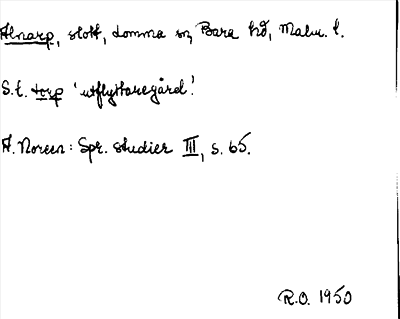 Alnarp, slott, Lomma sn, Bara hd, Malm. l.
S.l. torp 'utflyttaregård'.
A. Noreen: Spr. studier III, s. 65.
R.O. 1950